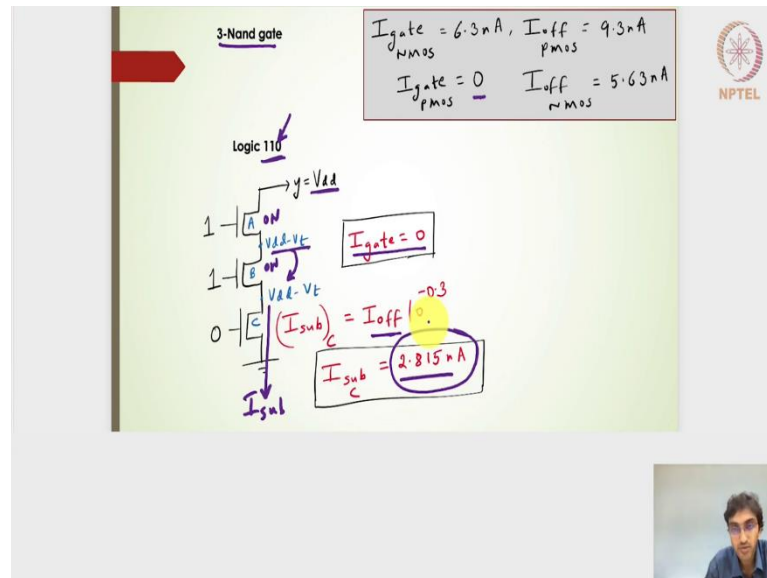 3-Nand gate
I gate NMOS = 6.3nA, I off PMOS = 9.3nA
I gate PMOS = 0 I off NMOS = 5.63nA
NPTEL
Logic 110
y = Vdd
1 A ON
Vdd-Vt
I gate = 0
1 B ON
Vdd-Vt
0 C (I sub)C = I off 10^-0.3
I sub C = 2.815nA
I sub